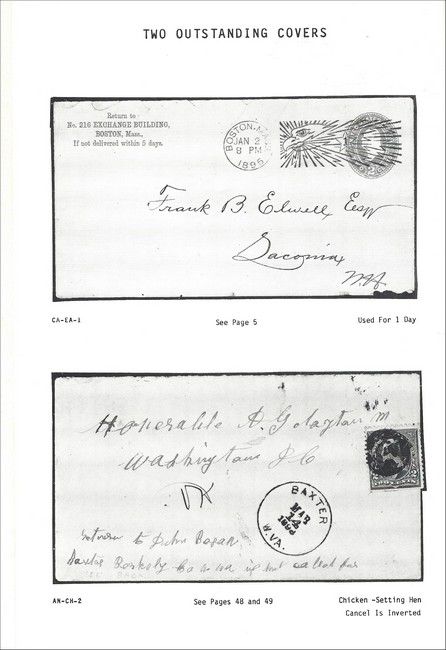 TWO OUTSTANDING COVERS
Return to
No. 216 EXCHANGE BUILDING,
BOSTON, Mass.,
If not delivered within 5 days.
BOSTON, MA
JAN 2
8 PM
1895
Frank B. Elwell Esq
Laconia
N.H.
CA-EA-1
See Page 5
Used For 1 Day
Honorable A. G.
Washington D C
BAXTER
MAR
14
W.VA.
return to John
Baxter
AN-CH-2
See Pages 48 and 49
Chicken -Setting Hen
Cancel Is Inverted